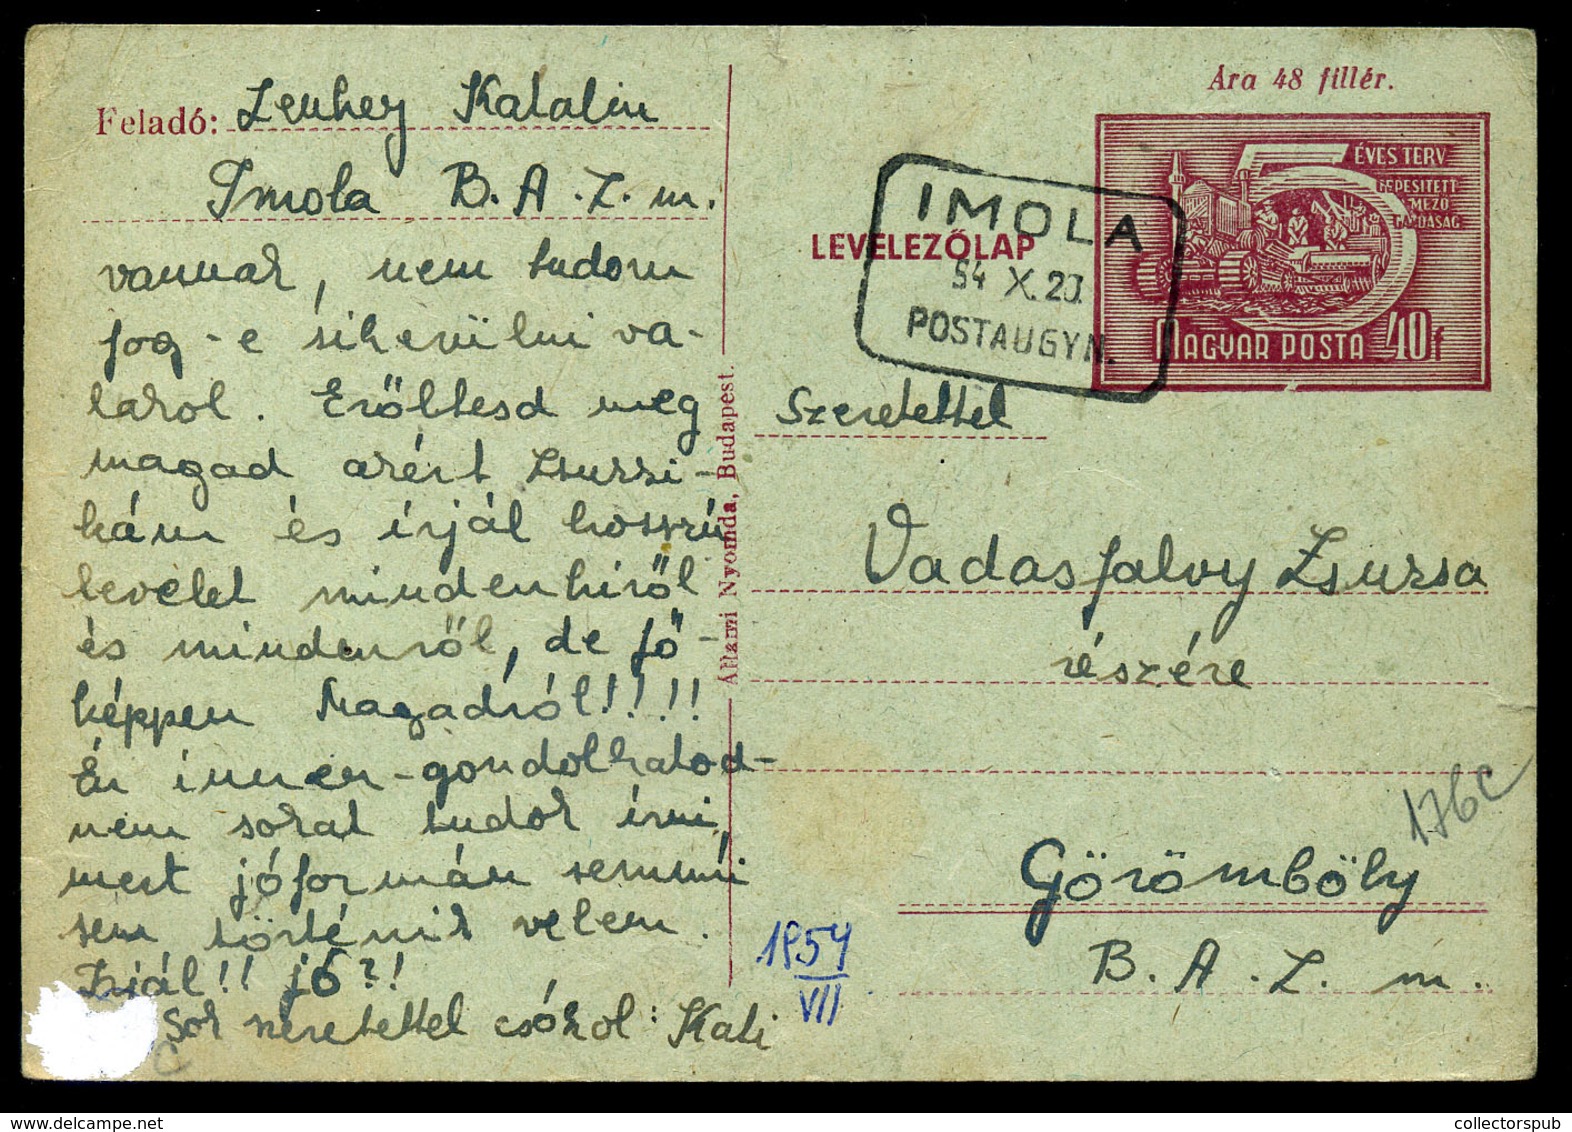 Feladó: Lenhey Katalin
Imola B. A. Z. m.
vannak, nem tudom
fog-e sikerülni va-
lakol. Erőltesd meg
magad azért Zsuzsi-
kám és írjál hosszú
levelet mindenkiről
és mindenről, de fő-
képpen Magadról!!!!
Én innen -gondolhatod-
nem sokat tudok írni,
mert jóformán semmi
sem történik velem.
Írjál!! jó?!
Sok szeretettel csókol: Kati
Állami Nyomda, Budapest.
Ára 48 fillér.
5 ÉVES TERV
GÉPESÍTETT
MEZŐ
GAZDASÁG
MAGYAR POSTA 40f
LEVELEZŐLAP
IMOLA
54 X. 20.
POSTAUGYN.
Szeretettel
Vadasfalvy Zsuzsa
részére
Görömböly
B. A. Z. m.
176c
1954
VII
C
collectorspub